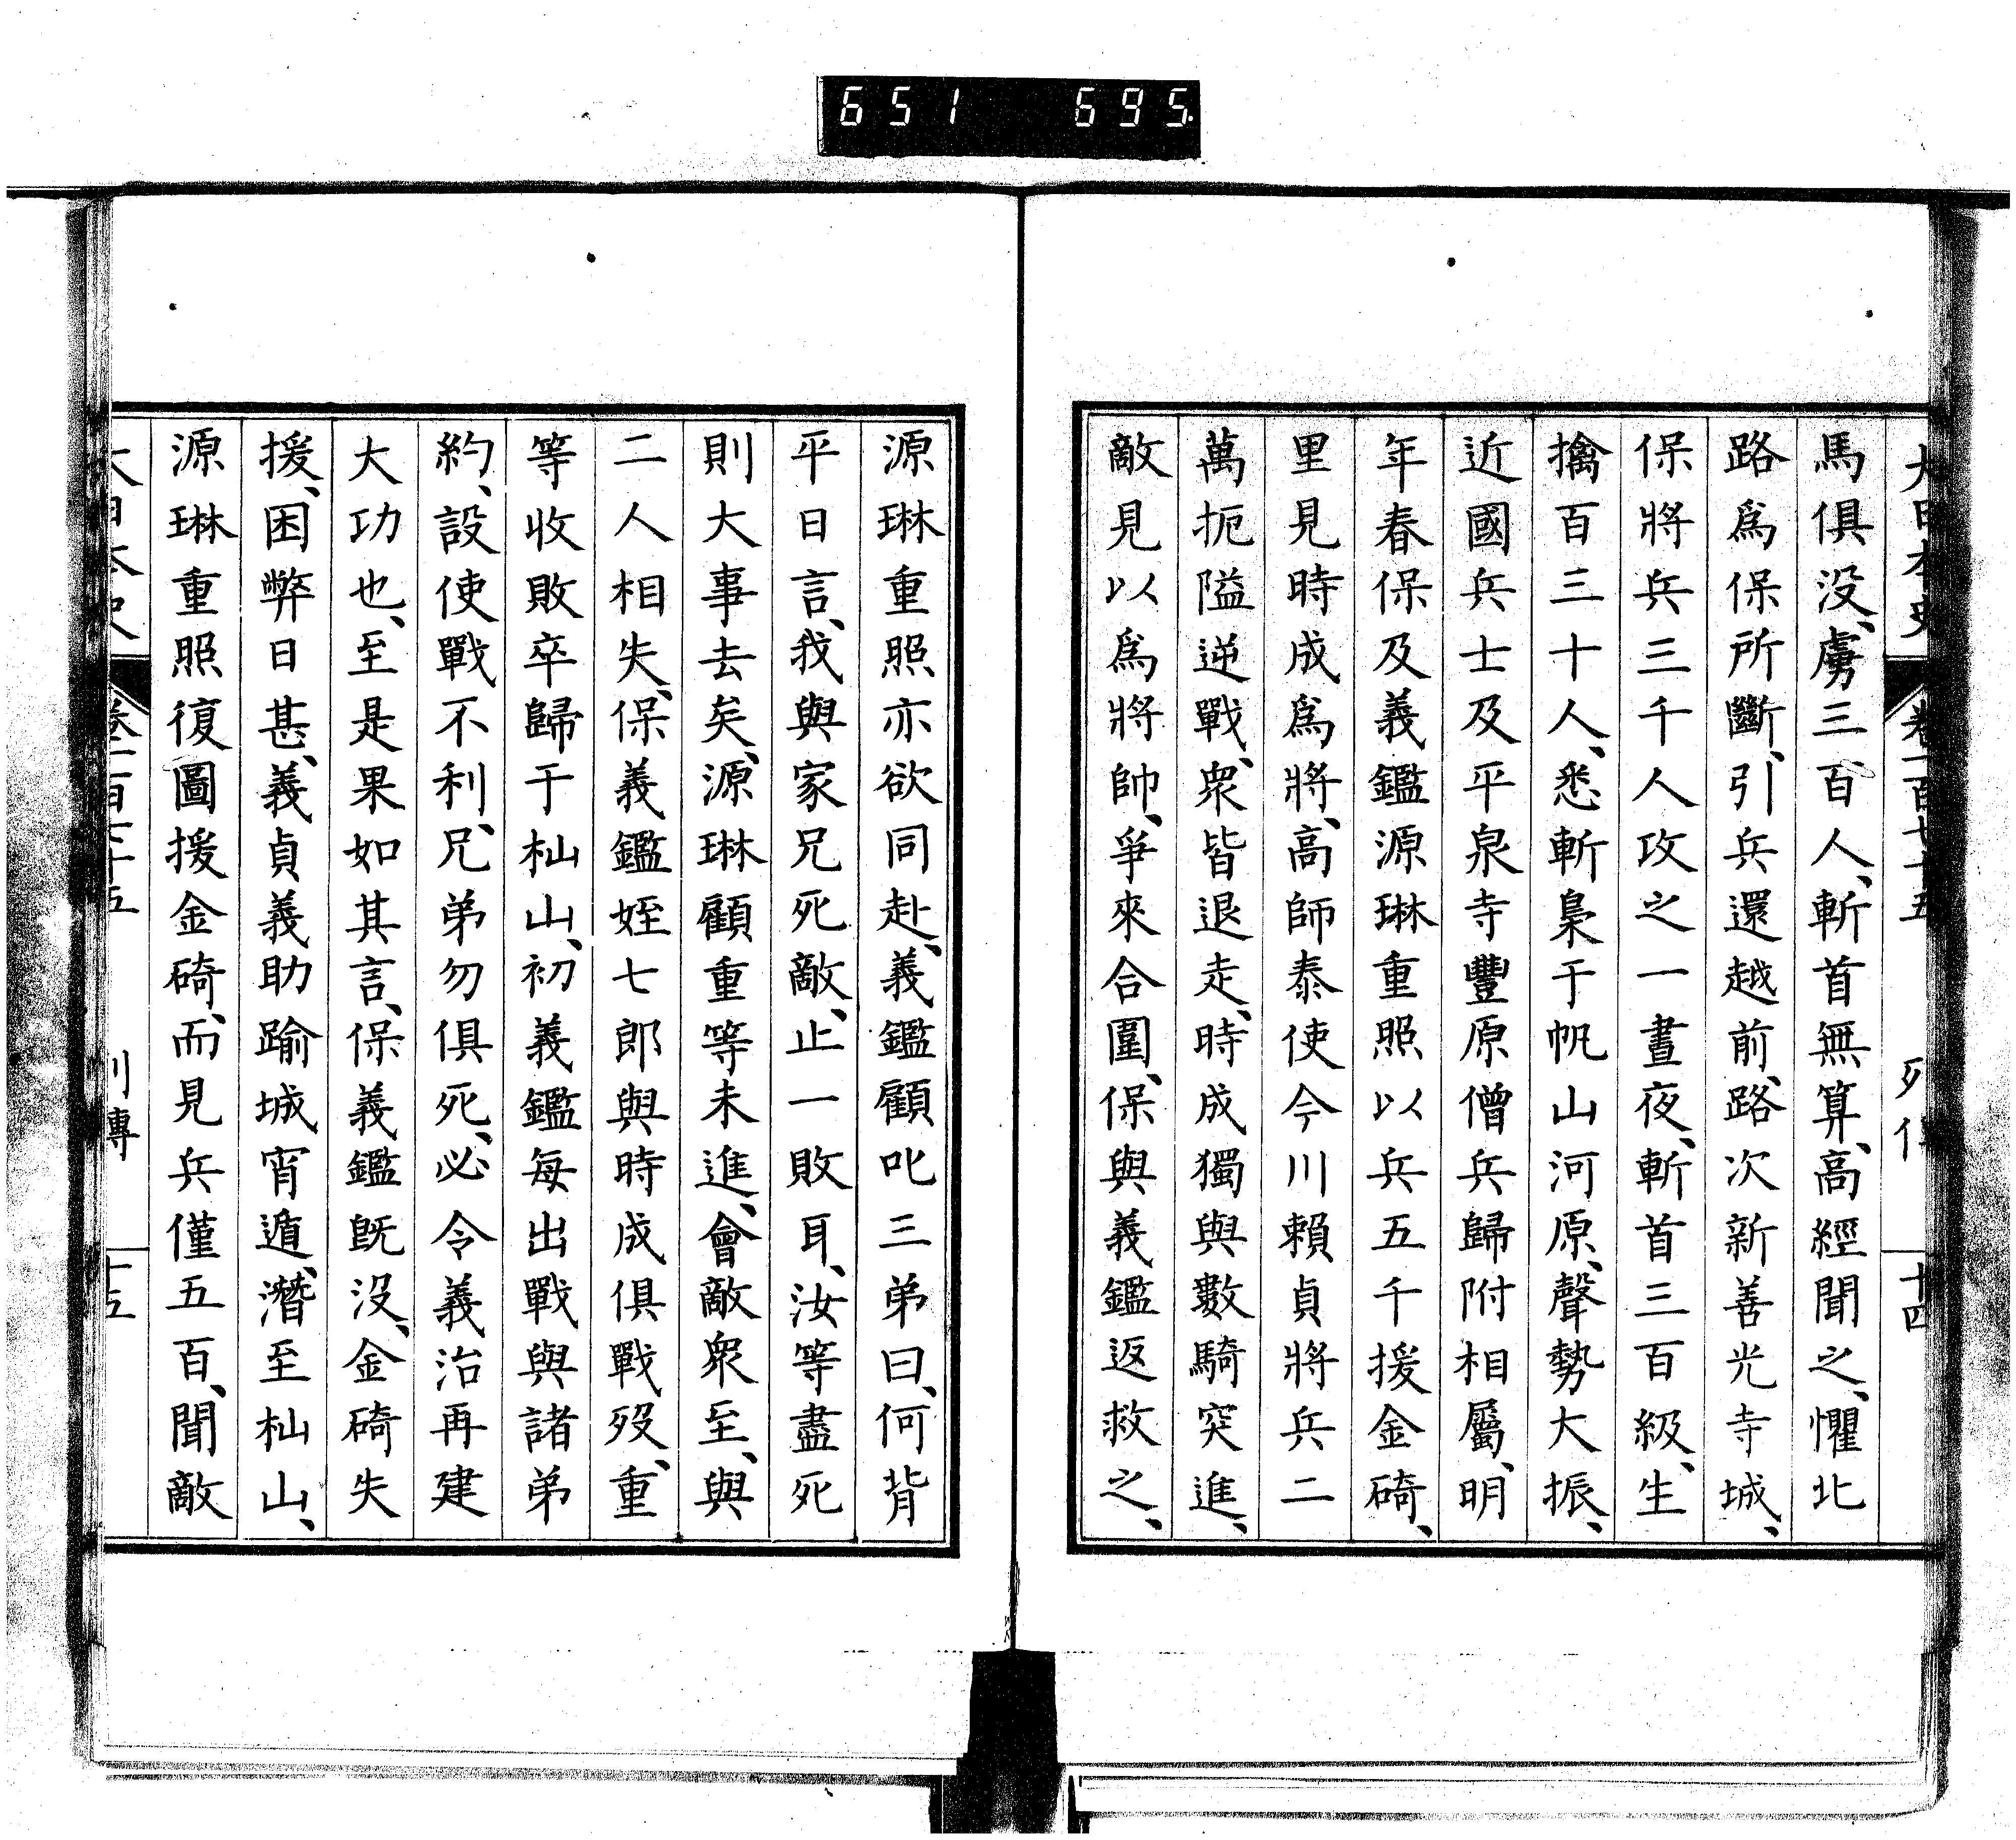 651 695.
大日本史 卷一百七十五 列傳 十四
馬俱没、虜三百人、斬首無算、高經聞之、懼北
路爲保所斷、引兵還越前、路次新善光寺城、
保將兵三千人攻之一晝夜、斬首三百級、生
擒百三十人、悉斬梟于帆山河原、聲勢大振、
近國兵士及平泉寺豐原僧兵歸附相屬、明
年春保及義鑑源琳重照以兵五千援金碕、
里見時成爲將、高師泰使今川賴貞將兵二
萬扼隘逆戰、衆皆退走、時成獨與數騎突進、
敵見以爲將帥、爭來合圍、保與義鑑返救之、
源琳重照亦欲同赴、義鑑顧叱三弟曰、何背
平日言、我與家兄死敵、止一敗耳、汝等盡死
則大事去矣、源琳顧重等未進、會敵衆至、與
二人相失、保義鑑姪七郎與時成俱戰歿、重
等收敗卒歸于杣山、初義鑑每出戰與諸弟
約、設使戰不利、兄弟勿俱死、必令義治再建
大功也、至是果如其言、保義鑑既没、金碕失
援、困弊日甚、義貞義助踰城宵遁、潛至杣山、
源琳重照復圖援金碕、而見兵僅五百、聞敵
大日本史 卷一百七十五 列傳 十五